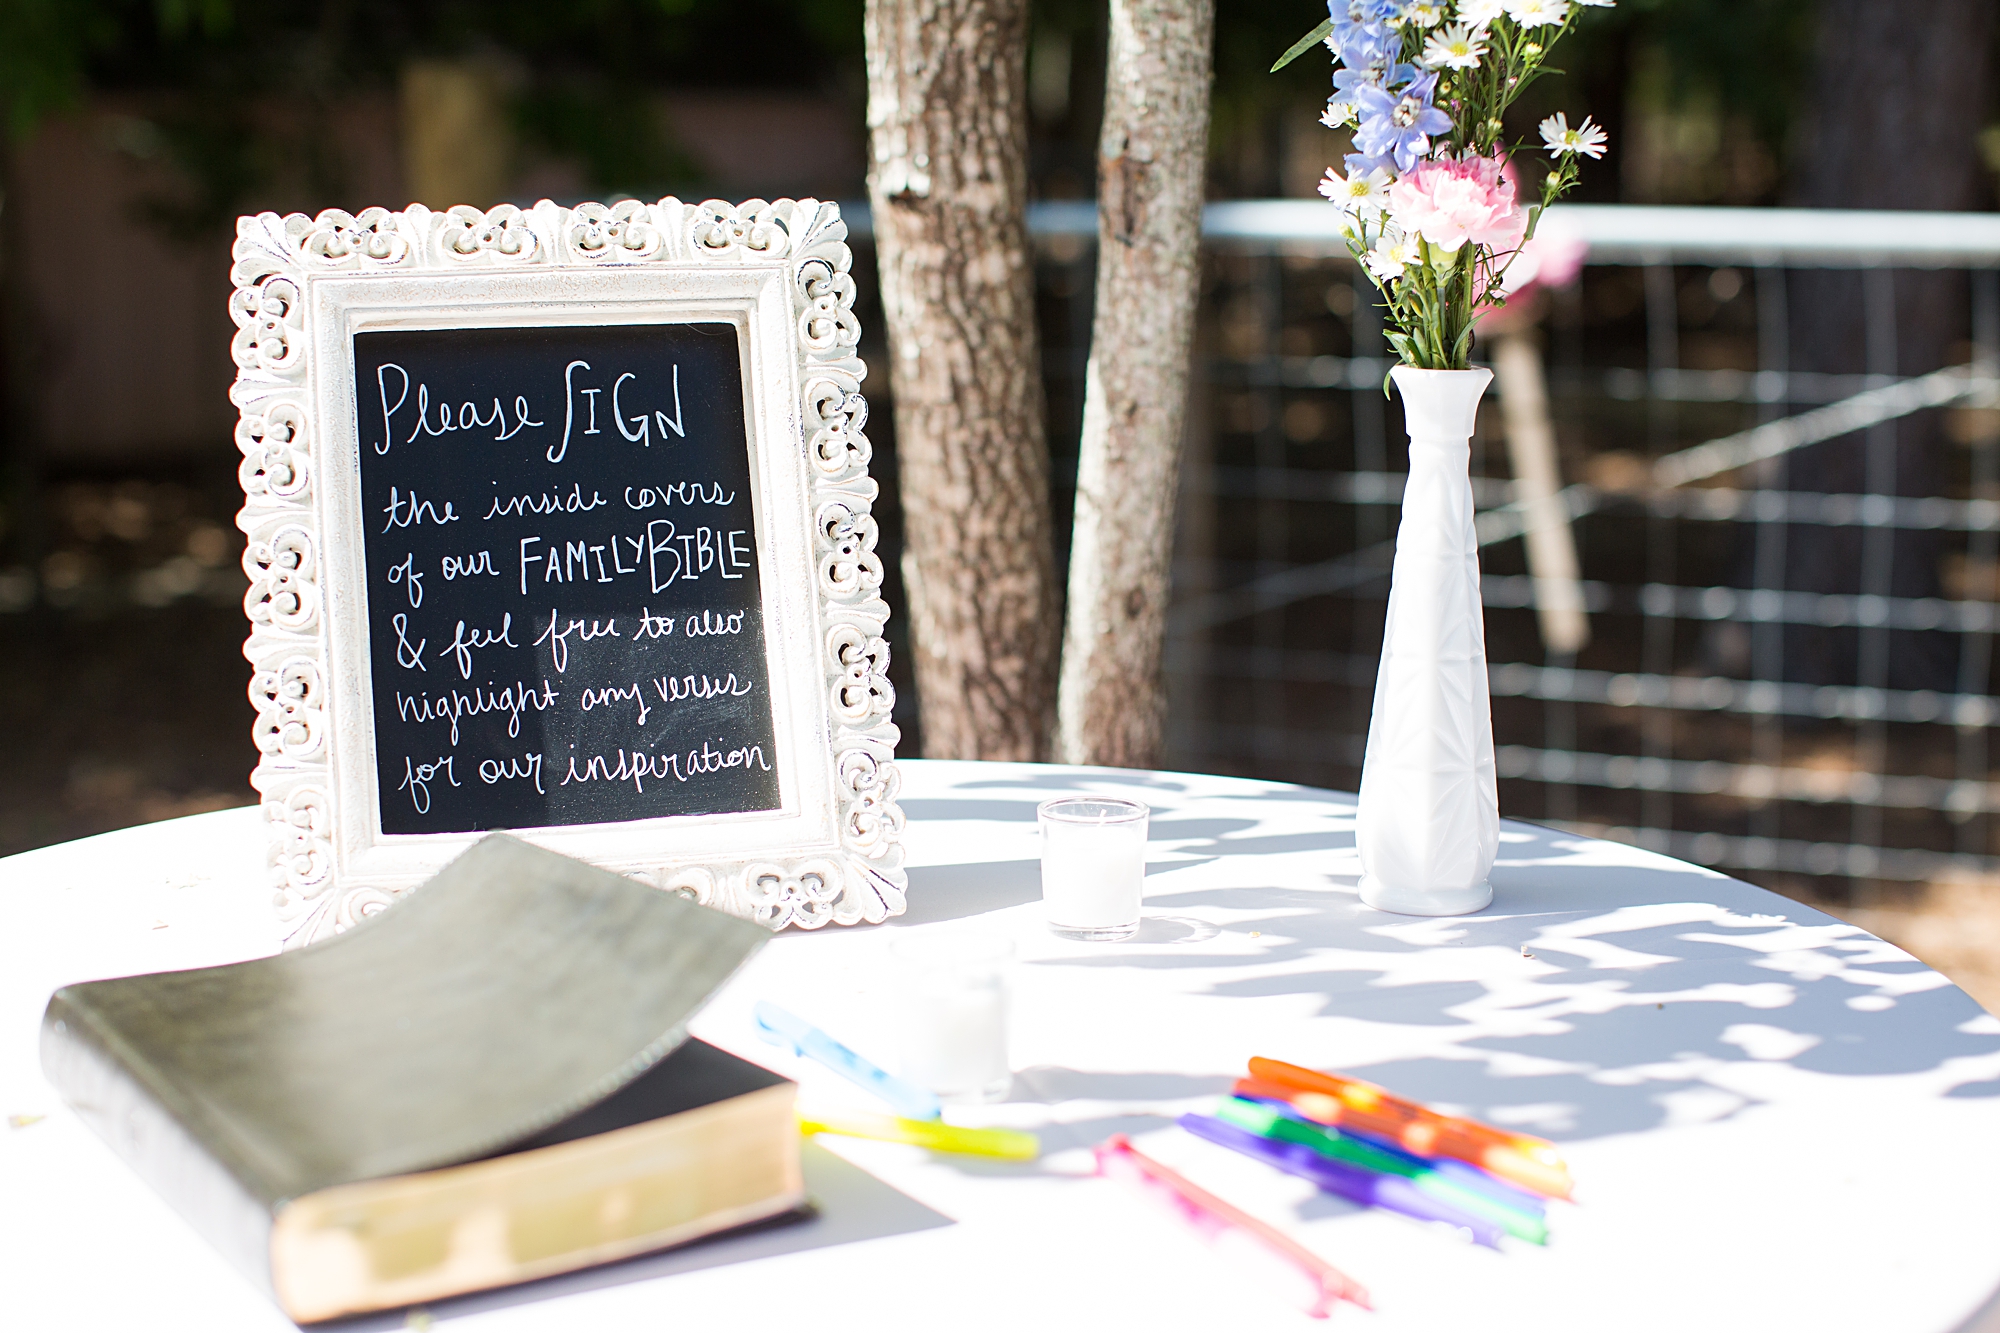 Please SIGN
the inside covers
of our FAMILY BIBLE
& feel free to also
highlight any verses
for our inspiration